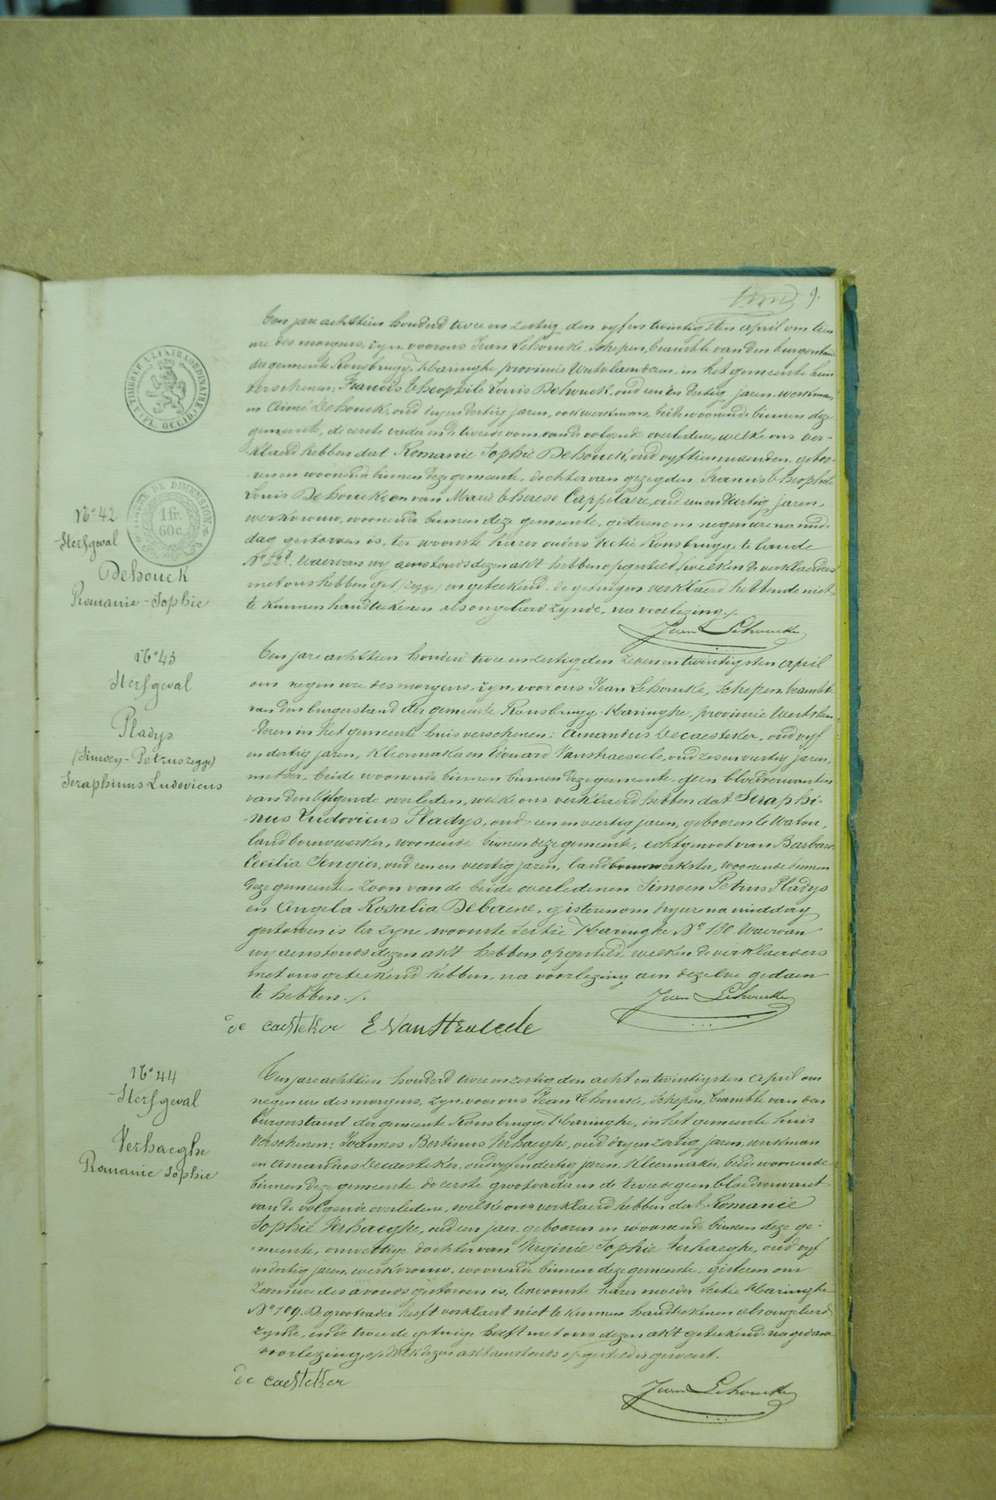 9.
Een jare achttien honderd twee en zestig den vyf en twintigsten April om tien
ure des morgens, zyn voor ons Jean Lehoucke, schepen, beambte van den burgerstand
der gemeente Rousbrugge-Haringhe provincie Westvlaanderen, in het gemeente huis
verschenen; Francis Theophile Louis Dehouck, oud een en dertig jaren, werkman,
en Aimé Dehouck, oud dertig jaren, ook werkman, beide woonende binnen deze
gemeente, de eerste vader en de tweede oom van de volgende overledene, welke ons ver-
klaard hebben dat Romanie Sophie Dehouck, oud vyftien maenden, geboo-
ren en woonende binnen deze gemeente, dochter van gezegden Francis Theophile
Louis Dehoucke en van Marie Therese Cappelaere, oud een en dertig jaren,
werkvrouw, woonende binnen deze gemeente, gisteren om negen ure na mid-
dag gestorven is, ter woonste harer ouders sectie Rousbrugge te lande
Nº 22d. Waervan wy aenstonds dezen akt hebben opgesteld, welken de verklaerders
met ons hebben geteekend, de getuigen verklaerd hebbende niet
te kunnen handteekenen als ongeleerd zynde, na voorlezing./.
Jean Lehoucke
Nº 42
Sterfgeval
Dehouck
Romanie-Sophie
Nº 43
Sterfgeval
Pladys
(Simoen-Petrus zegge)
Seraphinus Ludovicus
Een jare achttien honderd twee en zestig den zeven en twintigsten April
om negen ure des morgens, zyn, voor ons Jean Lehoucke, schepen beambte
van den burgerstand der gemeente Rousbrugge-Haringhe, provincie Westvlaen-
deren in het gemeente huis verschenen: Amandus Decaesteker, oud vyf
en dertig jaren, kleermaker en Edouard Vanstraeseele, oud zes en veertig jaren,
metser, beide woonende binnen binnen deze gemeente geen bloedverwanten
van den volgende overleden, welke ons verklaerd hebben dat Seraphi-
nus Ludovicus Pladys, oud een en veertig jaren, geboren te Watou,
landbouwwerker, woonende binnen deze gemeente, echtgenoot van Barbara
Cecilia Engier, oud een en veertig jaren, landbouwwerkster, woonende binnen
deze gemeente. Zoon van de beide overledenen Simoen Petrus Pladys
en Angela Rosalia Debaene, gisteren om dry ure na middag
gestorven is ter zyne woonste sectie Haringhe, Nº 180. Waervan
wy aenstonds dezen akt hebben opgesteld, welken de verklaerders
met ons geteekend hebben, na voorlezing aen dezelve gedaen
te hebben./.
Jean Lehoucke
De caesteker E VanStraesele
Nº 44
Sterfgeval
Verhaeghe
Romanie Sophie
Een jare achttien honderd twee en zestig den acht en twintigsten April om
negen ure des morgens, zyn voor ons Jean Lehoucke, schepen, beambte van den
burgerstand der gemeente Rousbrugge-Haringhe, in het gemeente huis
verschenen: Joannes Verhaeghe, oud dry en zestig jaren, werkman
en Amandus Decaesteker, oud vyf en dertig jaren, kleermaker, beide woonende
binnen deze gemeente de eerste grootvader en de tweede geen bloedverwant
van de volgende overledene, welke ons verklaerd hebben dat Romanie
Sophie Verhaeghe, oud een jaer, geboren en woonende binnen deze ge-
meente, onwettige dochter van Virginie Sophie Verhaeghe, oud vyf
en dertig jaren, werkvrouw, woonende binnen deze gemeente, gisteren om
zeven ure des avonds gestorven is, ter woonste harer moeder sectie Haringhe
Nº 109. De grootvader heeft verklaert niet te kunnen handteekenen als ongeleerd
zynde, en de tweede getuige heeft met ons dezen akt geteekend na gedaene
voorlezing, op welk dezen akt aenstonds opgesteld is geweest.
De caesteker
Jean Lehoucke